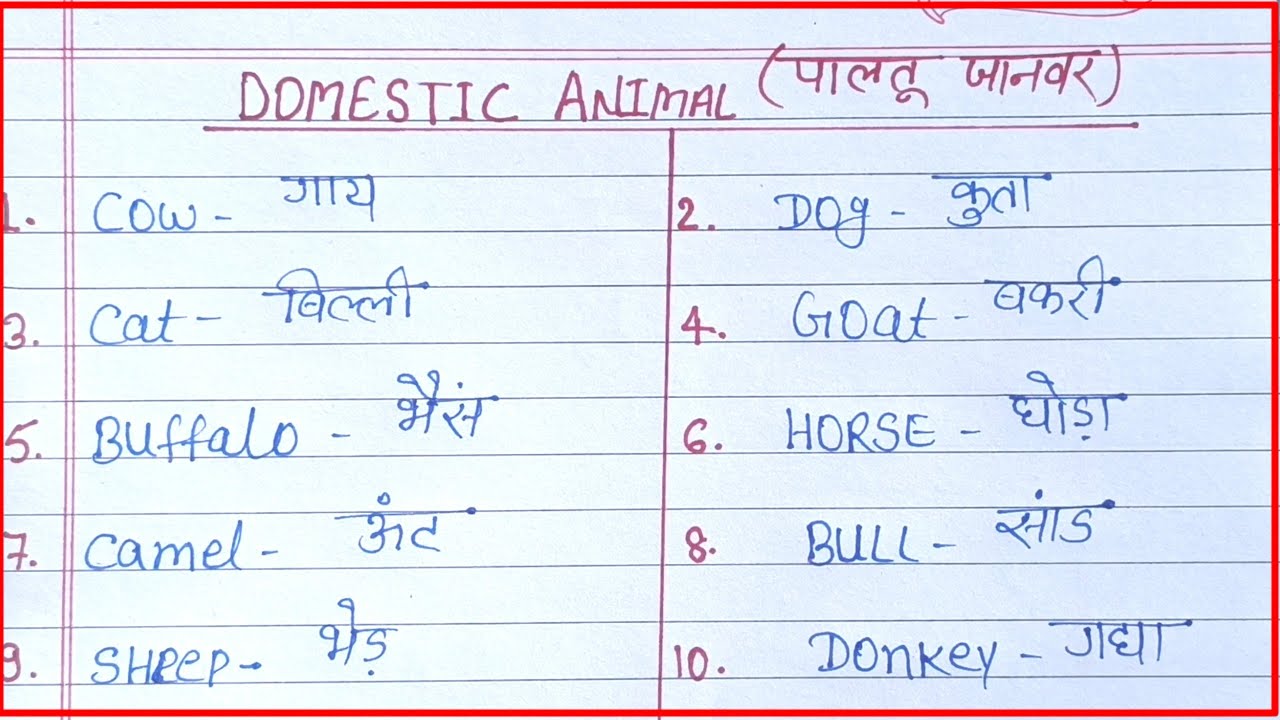 DOMESTIC ANIMAL (पालतू जानवर)
1. COW - गाय
2. DOg - कुता
3. Cat - बिल्ली
4. GOat - बकरी
5. BUffalo - भैंस
6. HORSE - घोड़ा
7. Camel - ऊंट
8. BULL - सांड
9. SHeep - भेड़
10. DOnkey - गधा